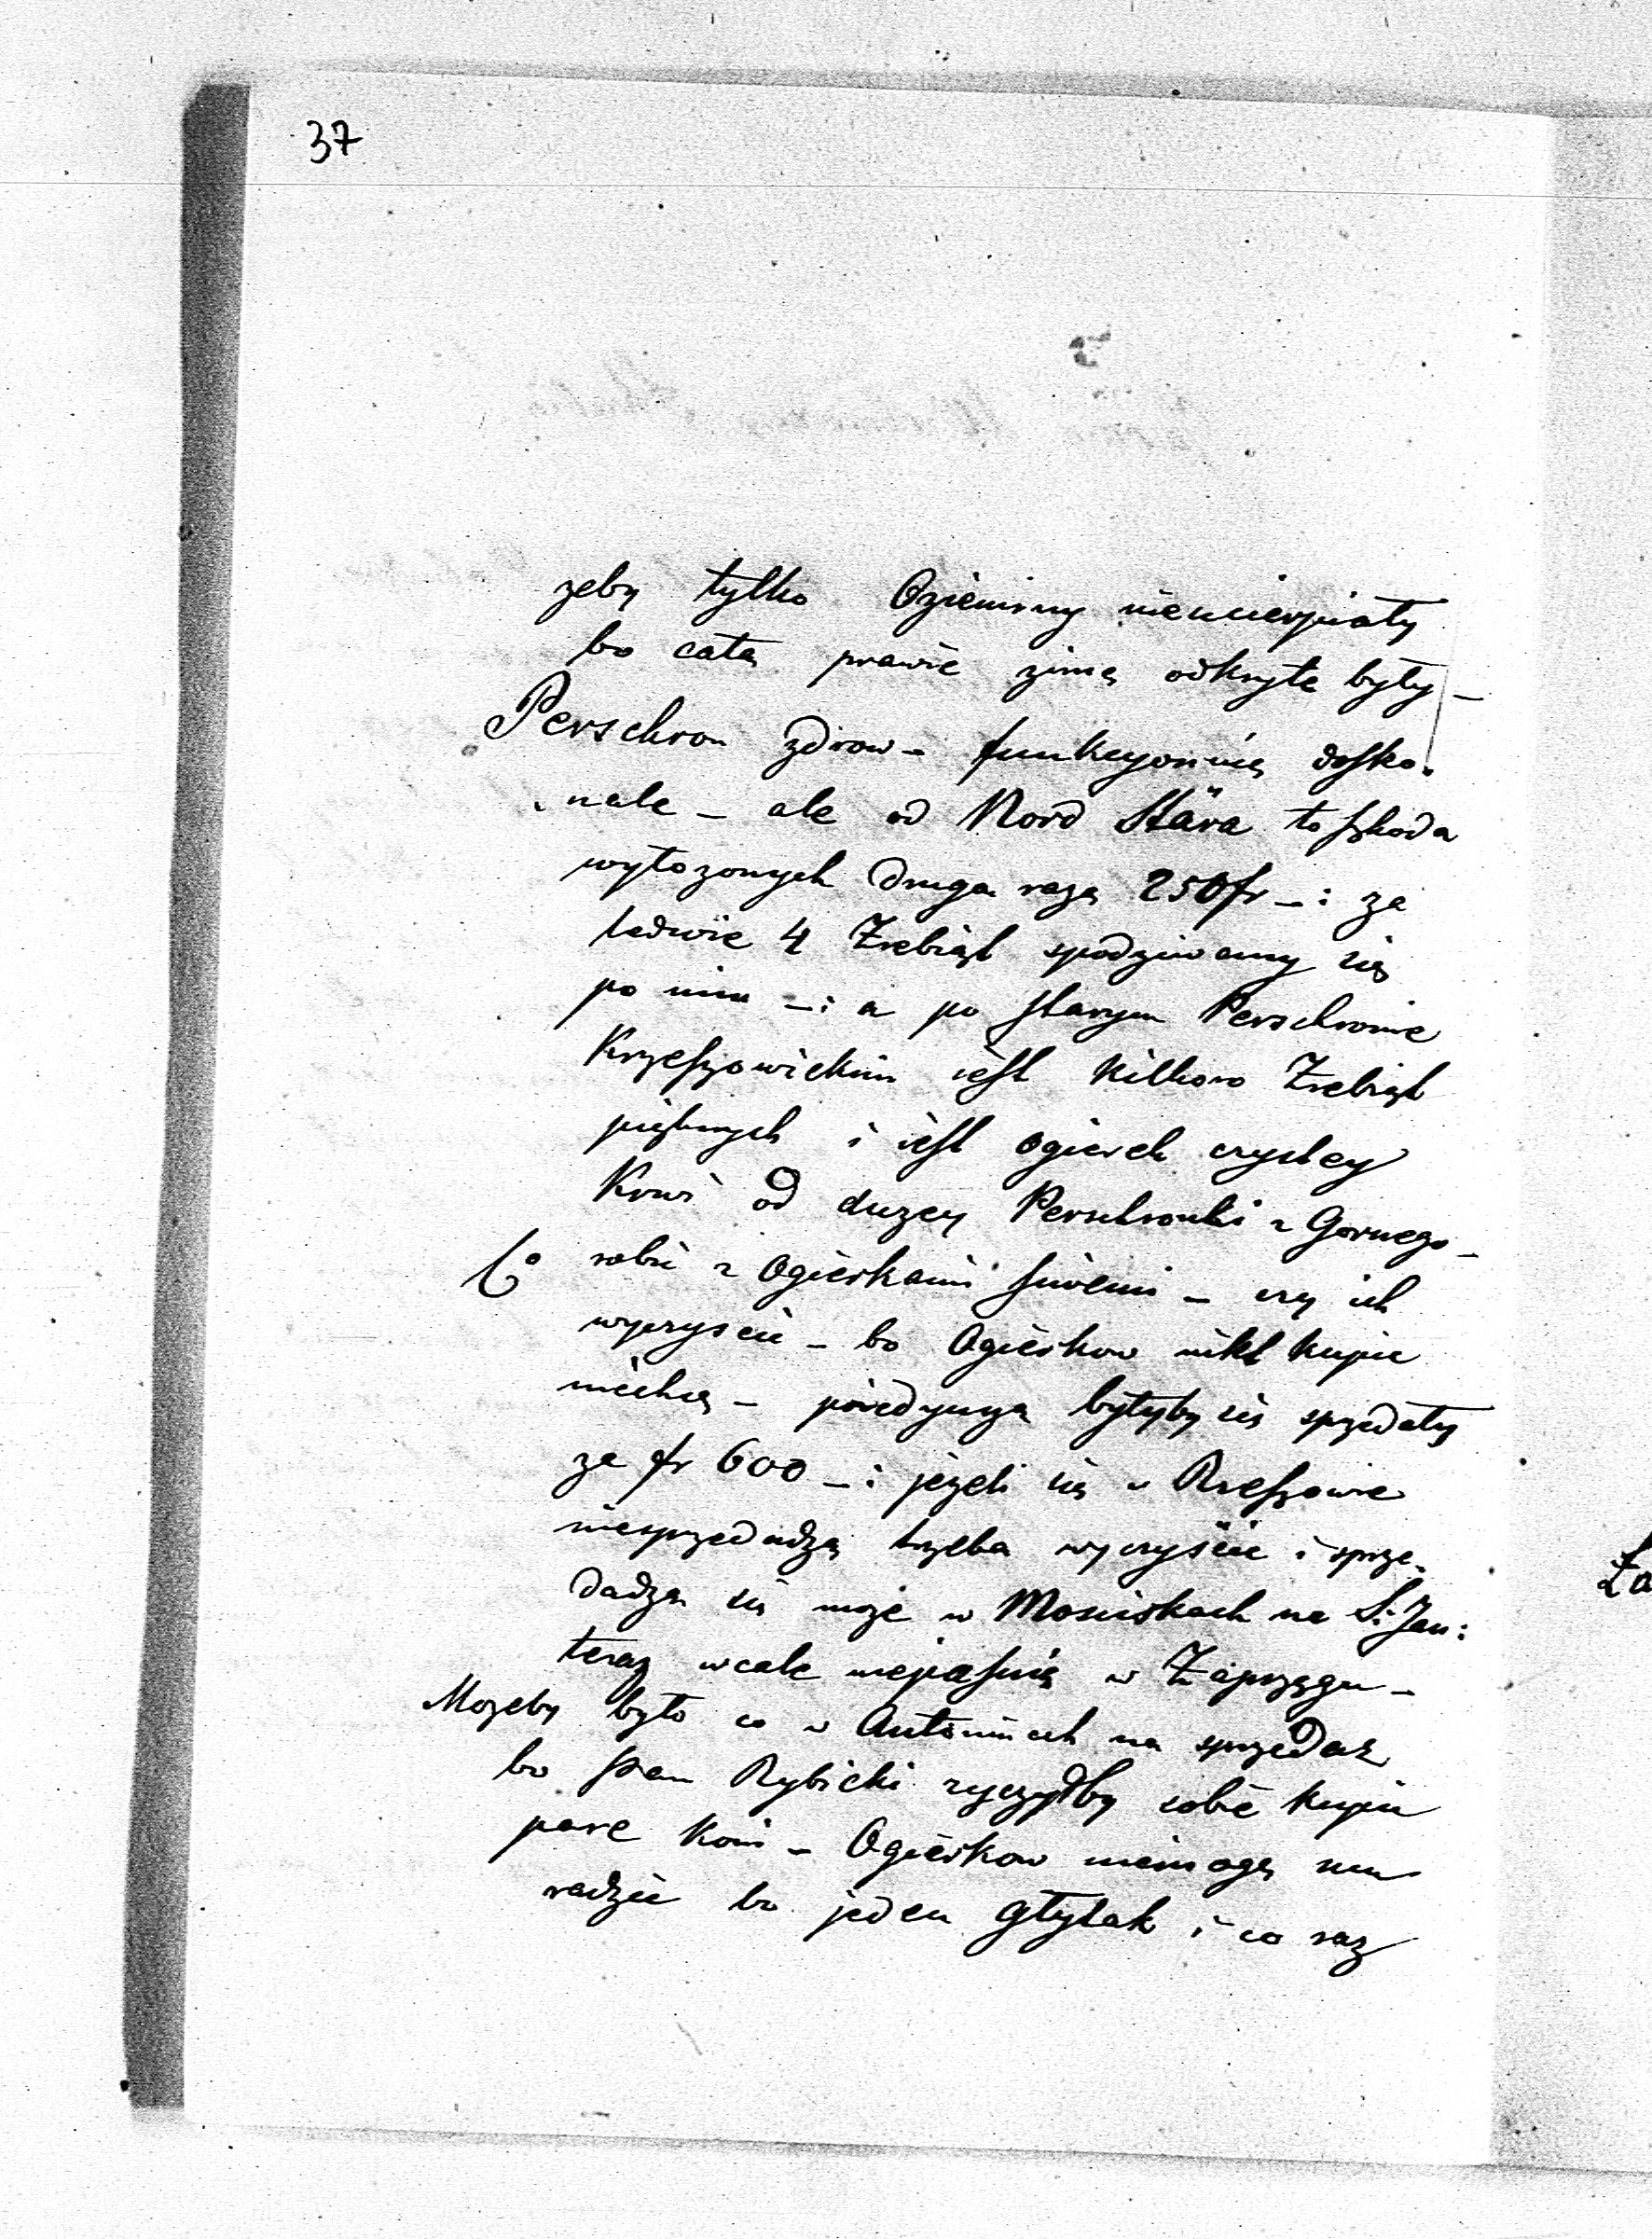 37
zeby tylko Oziminy nieucierpiały
bo całą prawie zimą odkryte były –
Perschron zdrow – funkcyonuią dosko-
nale – ale od Nord Stära to szkoda
wyłozonych druga razą 250 fr – i za
ledwie 4 Zrebiąt spodziwamy się
po nim – i a po starym Perschronie
Krzeszowickim iest kilkoro Zrebiąt
pięknych i iest ogierek czystey
Krwi od duzey Perschronki z Gornego –
Co robić z Ogierkami siwemi – czy ich
wyczyscić – bo Ogierkow nikt kupić
niechcą – poiedynczą byłyby się sprzedały
za fr 600 – i jezeli się w Rzeszowie
niesprzedadzą trzeba wyczyścić i sprze-
dadzą się może w Mosciskach na S. Jan:
teraz wcale niepasuią w Zaprzęgu –
Mozeby było co w Antoninach na sprzedaz
bo Pan Rybicki zyczyłby sobie kupić
pare koni – Ogierkow niemogę mu
radzić bo jeden głytak i co raz
Za